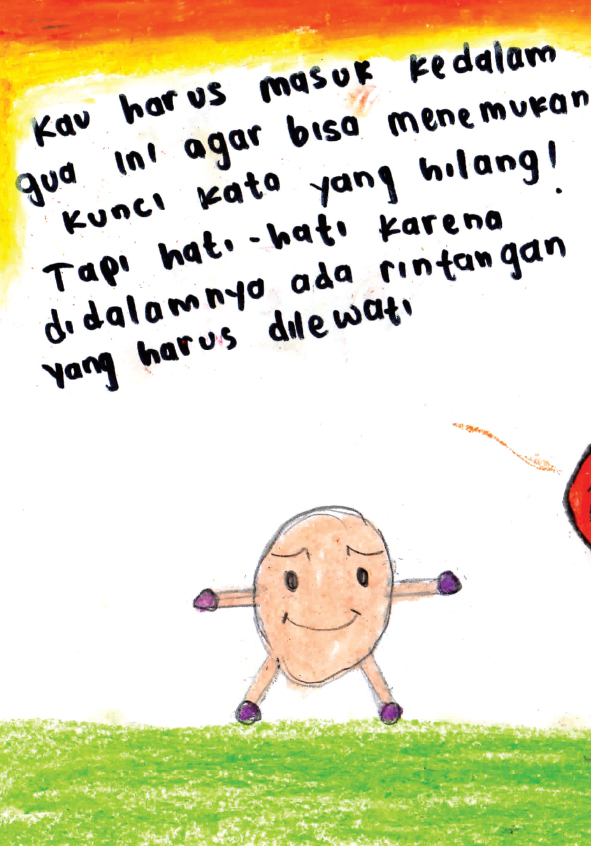 Kau harus masuk kedalam
gua ini agar bisa menemukan
kunci kata yang hilang!
Tapi hati-hati karena
didalamnya ada rintangan
yang harus dilewati